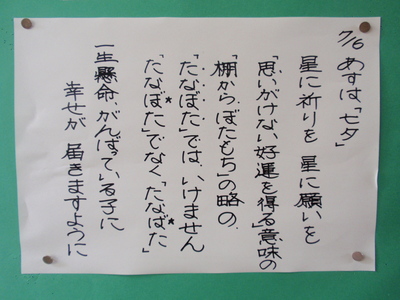 7/6 あすは「七夕」
星に祈りを 星に願いを
「思いがけない好運を得る」意味の
「棚から、ぼたもち」の略の、
「たなぼた」では、いけません
「たなぼ*た」でなく「たなば*た」
一生懸命、がんばっている子に
幸せが 届きますように